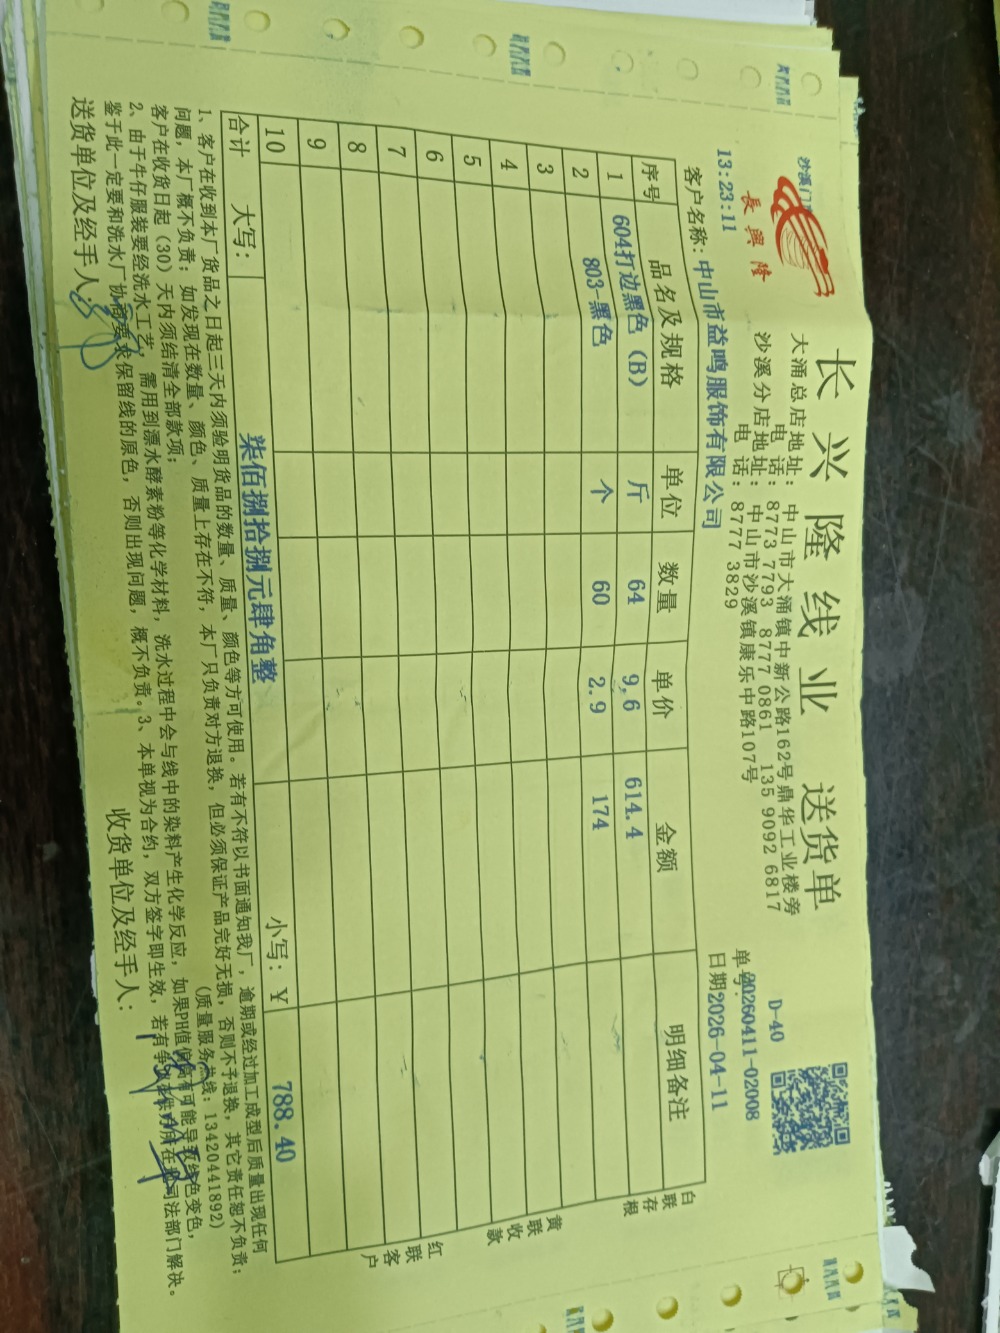 沙溪门
長興隆
长兴隆线业 送货单
大涌总店地址：中山市大涌镇中新公路162号鼎华工业楼旁
电话：8773 7793 8777 0861 135 9092 6817
沙溪分店地址：中山市沙溪镇康乐中路107号
电话：8777 3829
D-40
单号：20260411-02008
13:23:11
日期2026-04-11
客户名称：中山市益鸣服饰有限公司
序号 品名及规格 单位 数量 单价 金额 明细备注
1 604打边黑色（B） 斤 64 9.6 614.4
2 803-黑色 个 60 2.9 174
3
4
5
6
7
8
9
10
合计 大写：柒佰捌拾捌元肆角整 小写：¥ 788.40
白联存根
黄联收款
红联客户
1、客户在收到本厂货品之日起三天内须验明货品的数量、质量、颜色等方可使用。若有不符以书面通知我厂，逾期或经过加工成型后质量出现任何
问题，本厂概不负责；如发现在数量、颜色、质量上存在不符，本厂只负责对方退换，但必须保证产品完好无损，否则不予退换，其它责任恕不负责；
客户在收货日起（30）天内须结清全部款项； （质量服务热线：13420441892）
2、由于牛仔服装要经洗水工艺，需用到漂水酵素粉等化学材料，洗水过程中会与线中的染料产生化学反应，如果PH值偏高有可能导致线色变色，
鉴于此一定要和洗水厂协商要求保留线的原色，否则出现问题，概不负责。3、本单视为合约，双方签字即生效，若有争议提供方所在地司法部门解决。
送货单位及经手人： 收货单位及经手人：